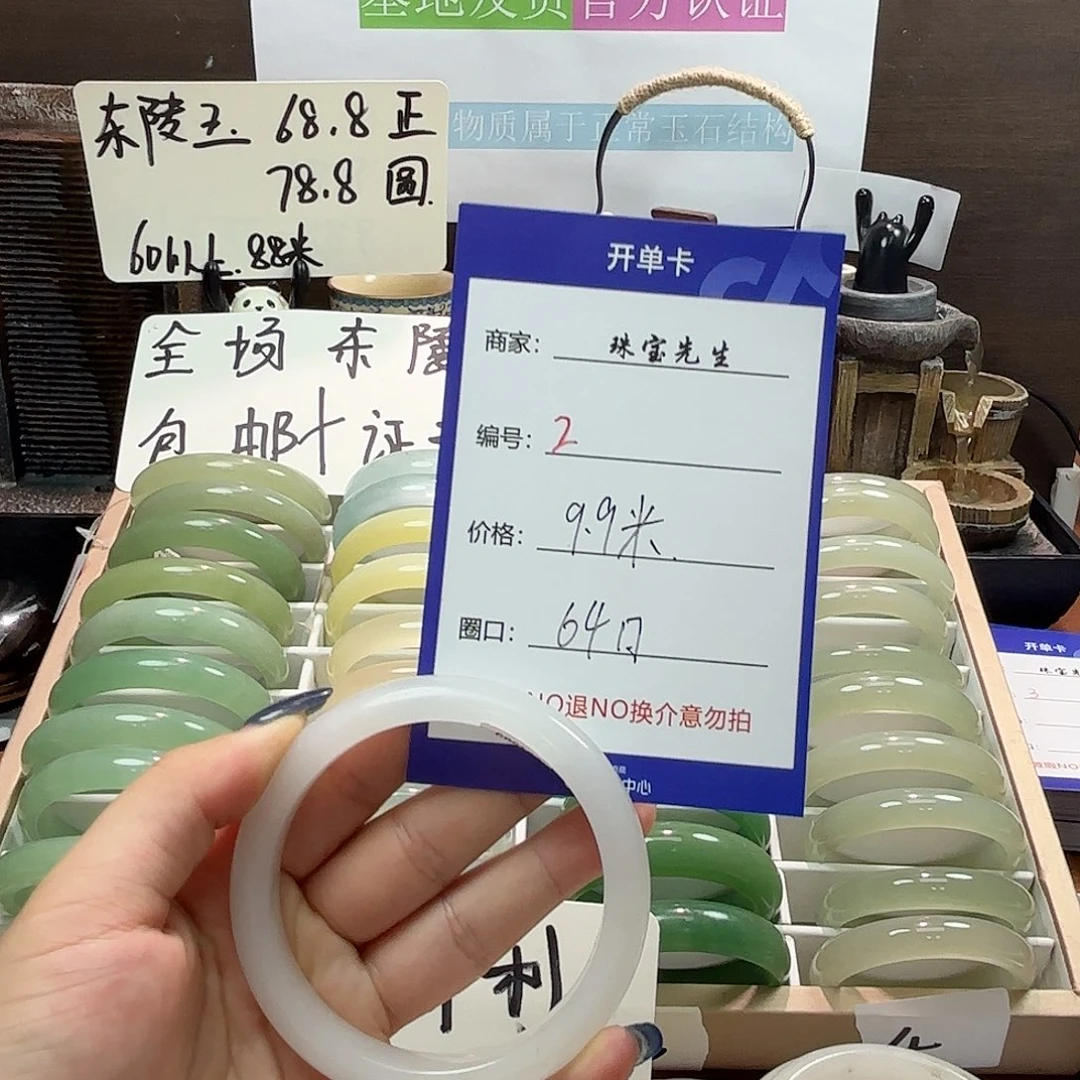 基地发货官方认证
物质属于正常玉石结构
东陵玉. 68.8 正
78.8 圆.
60以上. 88米
全场东陵
包邮+证
开单卡
商家: 珠宝先生
编号: 2
价格: 9.9米.
圈口: 64口
NO退NO换介意勿拍
中心
利
开单卡
3